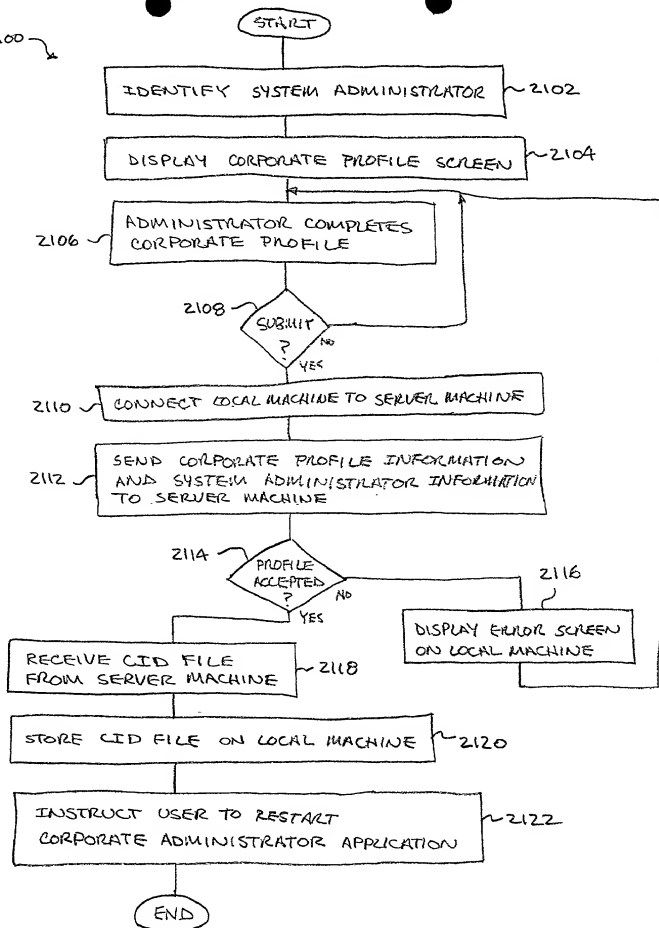 START
100
IDENTIFY SYSTEM ADMINISTRATOR
2102
DISPLAY CORPORATE PROFILE SCREEN
2104
ADMINISTRATOR COMPLETES
CORPORATE PROFILE
2106
2108
SUBMIT
?
NO
YES
2110
CONNECT LOCAL MACHINE TO SERVER MACHINE
2112
SEND CORPORATE PROFILE INFORMATION
AND SYSTEM ADMINISTRATOR INFORMATION
TO SERVER MACHINE
2114
PROFILE
ACCEPTED
?
NO
YES
2116
DISPLAY ERROR SCREEN
ON LOCAL MACHINE
RECEIVE CID FILE
FROM SERVER MACHINE
2118
STORE CID FILE ON LOCAL MACHINE
2120
INSTRUCT USER TO RESTART
CORPORATE ADMINISTRATOR APPLICATION
2122
END